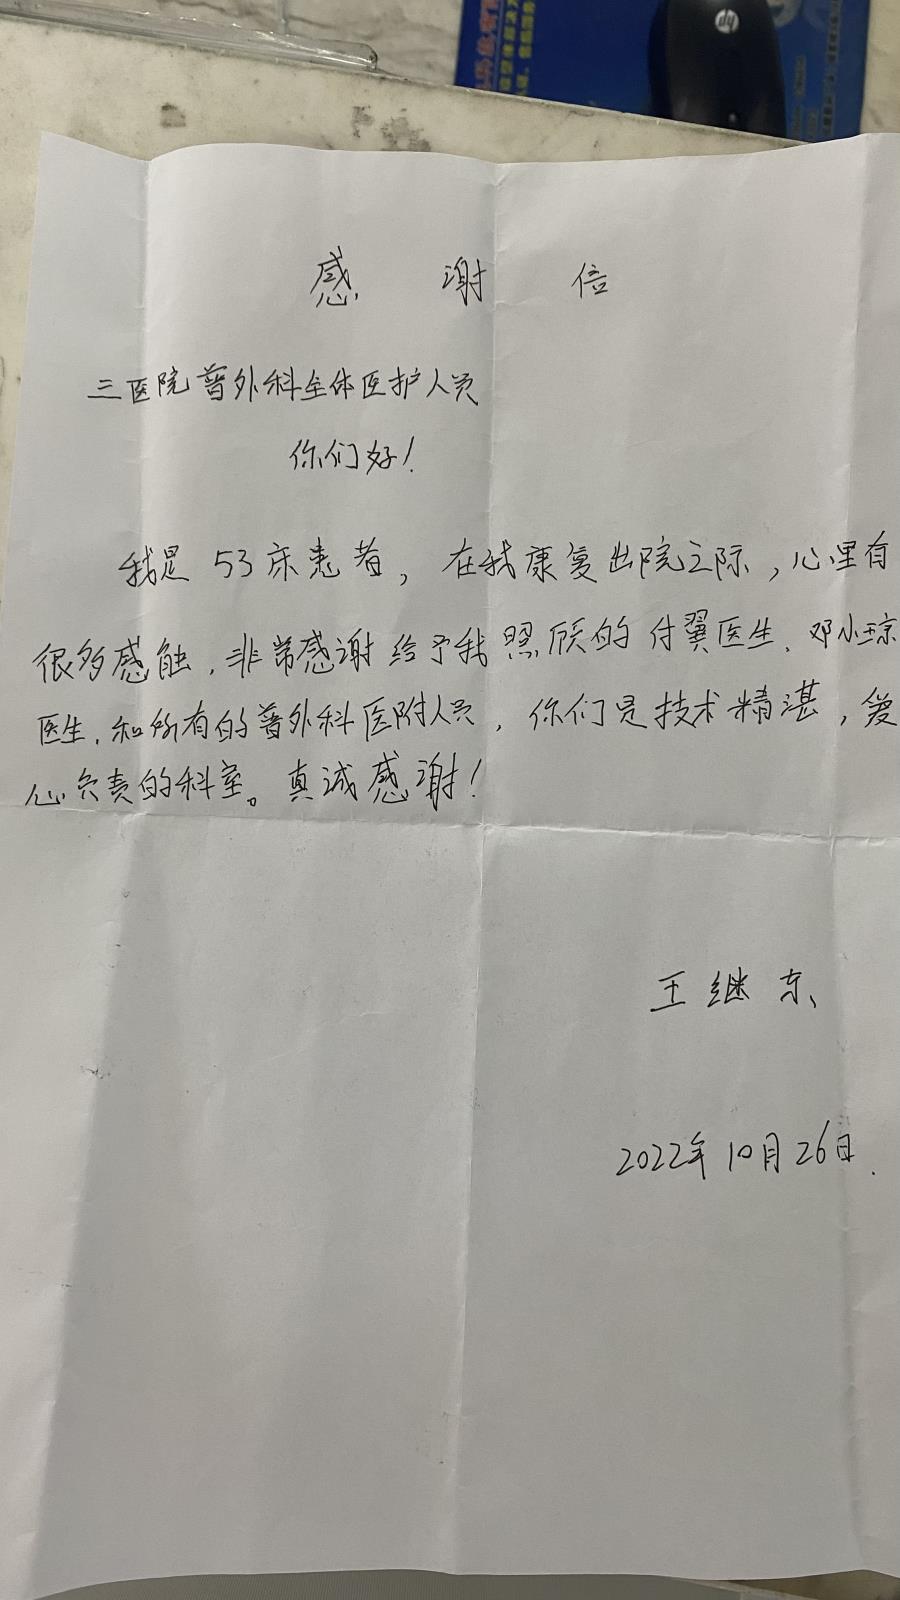 感谢信
三医院普外科全体医护人员
你们好！
我是53床患者，在我康复出院之际，心里有
很多感触，非常感谢给予我照顾的付翼医生、邓小琼
医生，和所有的普外科医附人员，你们是技术精湛，爱
心负责的科室。真诚感谢！
王继东
2022年10月26日.
hp